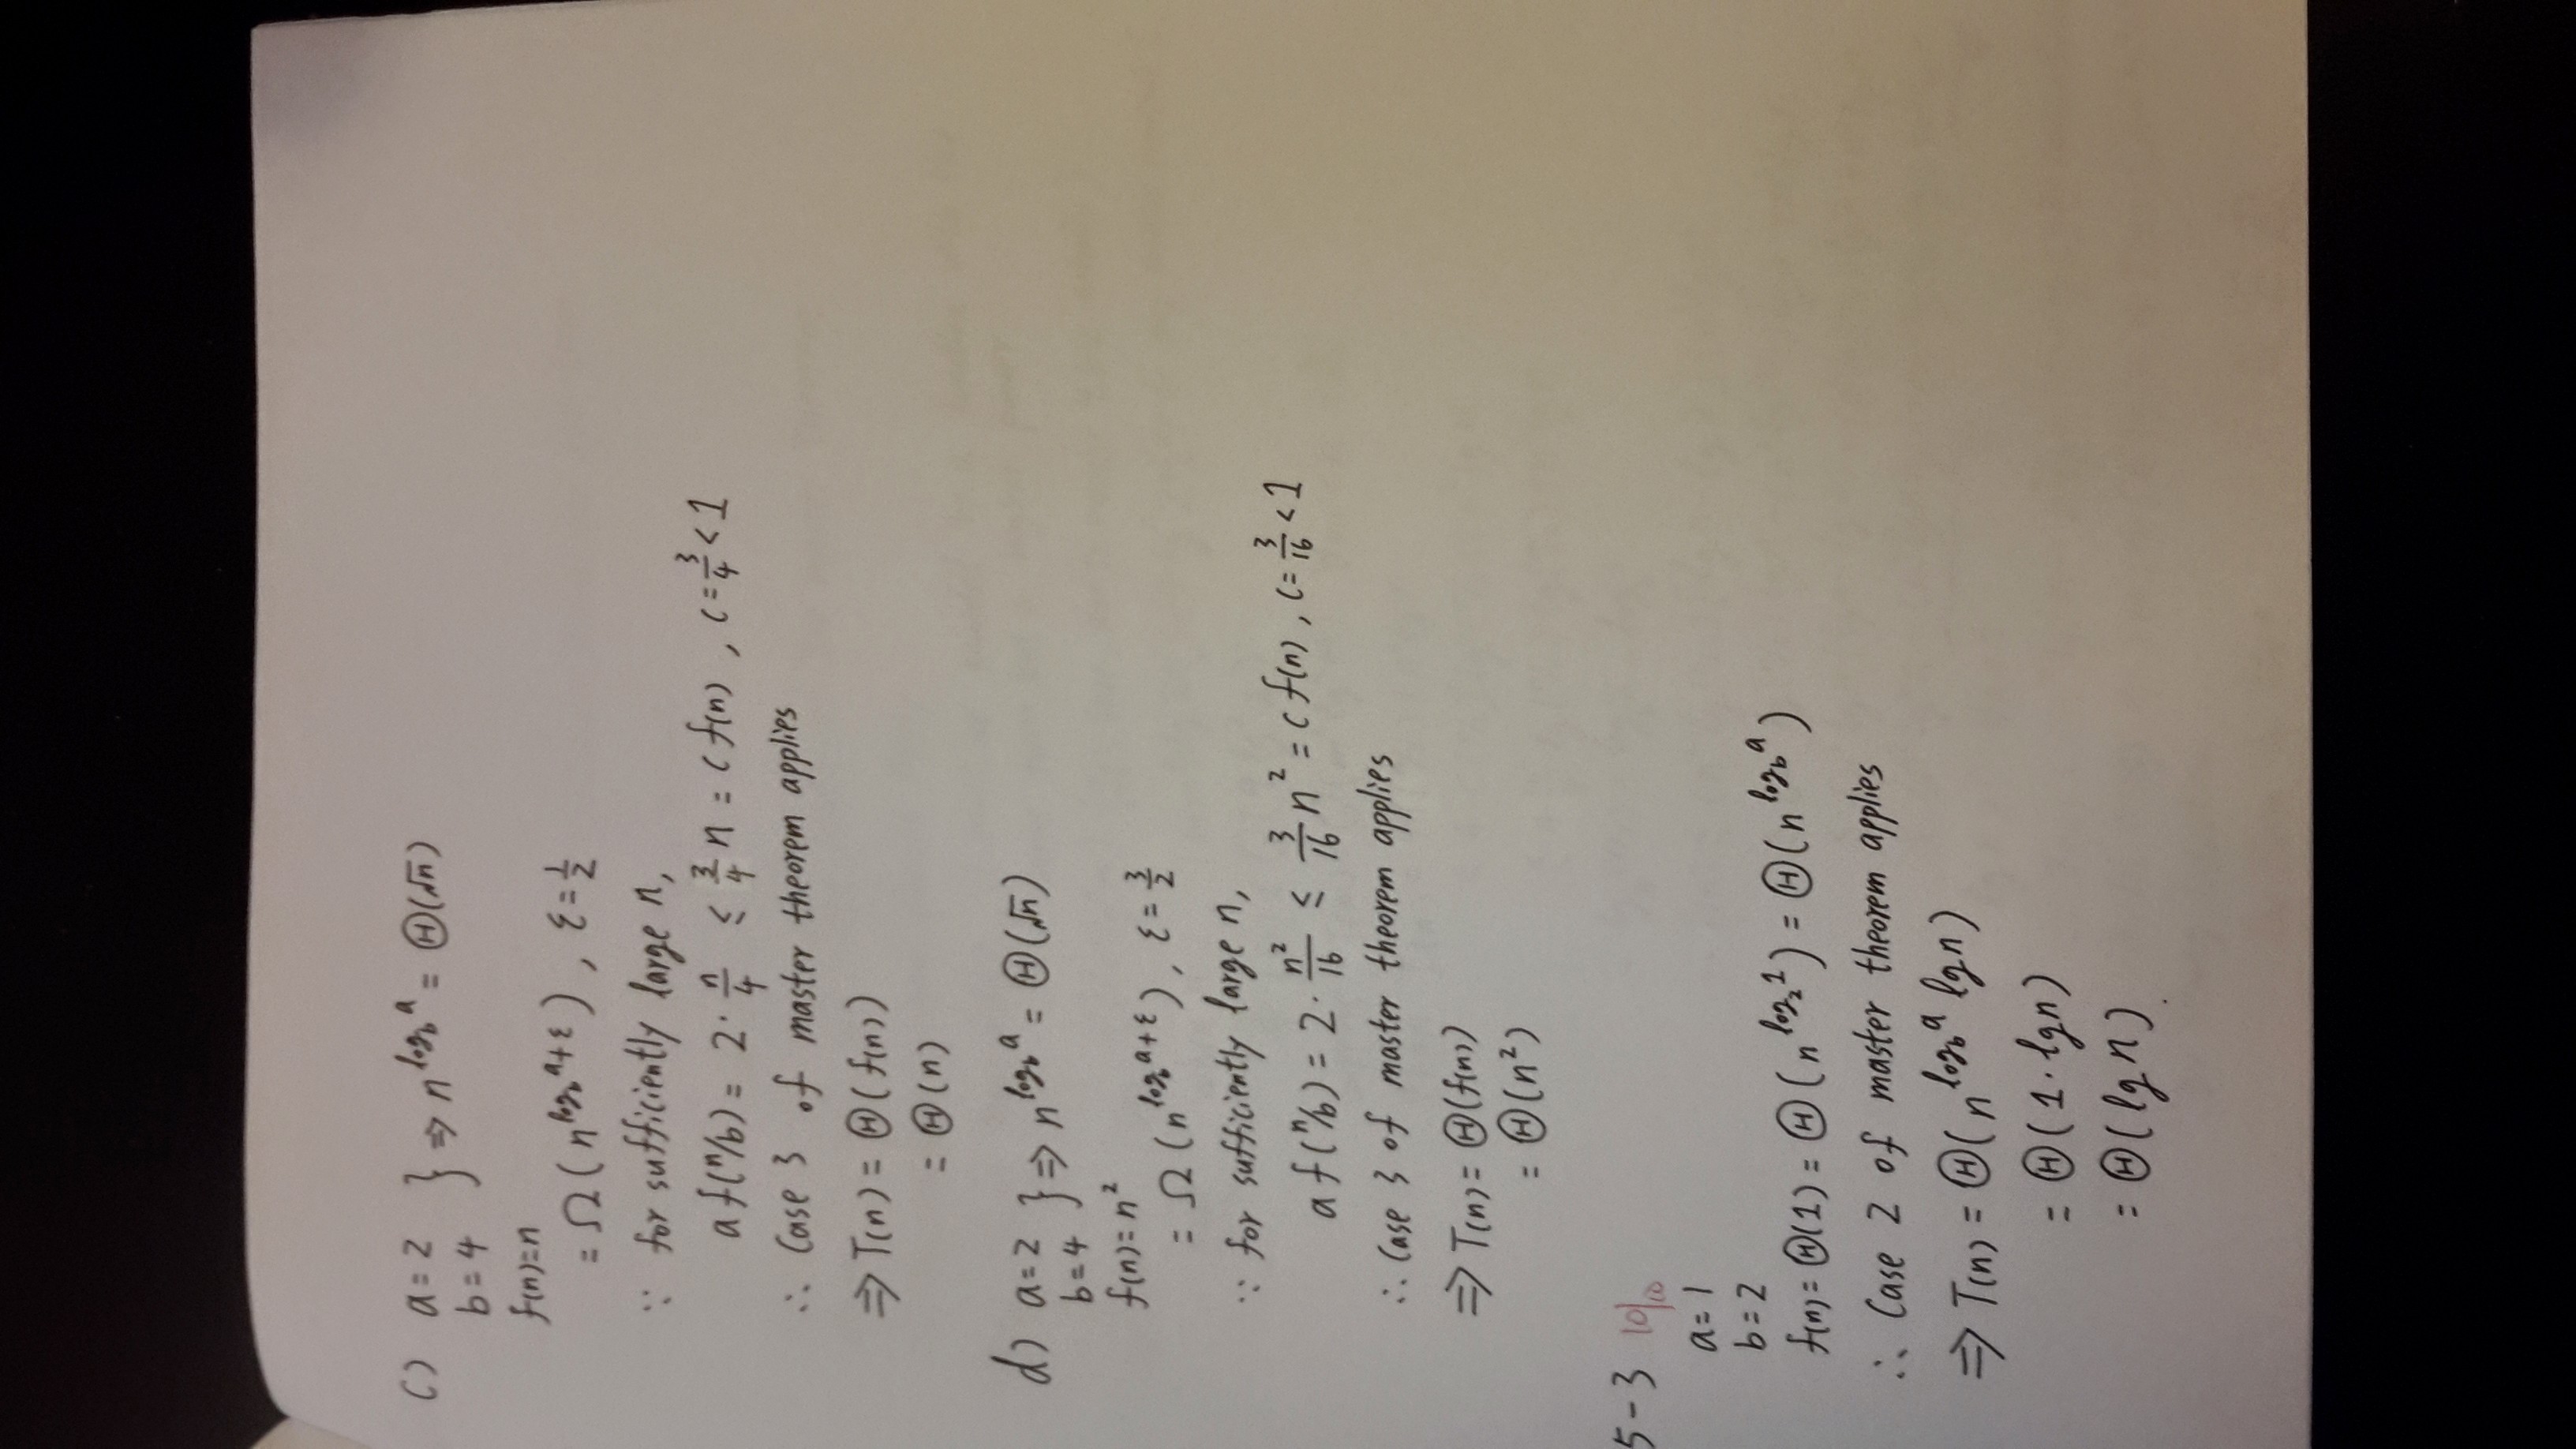 c) a=2 } ⇒ n^{log_b a} = Θ(√n)
b=4
f(n)=n
= Ω(n^{log_b a+ε}), ε=1/2
∵ for sufficiently large n,
a f(n/b) = 2·n/4 ≤ 3/4 n = c f(n), c=3/4<1
∴ Case 3 of master theorem applies
⇒ T(n) = Θ(f(n))
= Θ(n)
d) a=2 } ⇒ n^{log_b a} = Θ(√n)
b=4
f(n)=n²
= Ω(n^{log_b a+ε}), ε=3/2
∵ for sufficiently large n,
a f(n/b) = 2·n²/16 ≤ 3/16 n² = c f(n), c=3/16<1
∴ Case 3 of master theorem applies
⇒ T(n) = Θ(f(n))
= Θ(n²)
5-3 10/10
a=1
b=2
f(n)=Θ(1)=Θ(n^{log_2 1})=Θ(n^{log_b a})
∴ Case 2 of master theorem applies
⇒ T(n) = Θ(n^{log_b a} lg n)
= Θ(1·lg n)
= Θ(lg n).